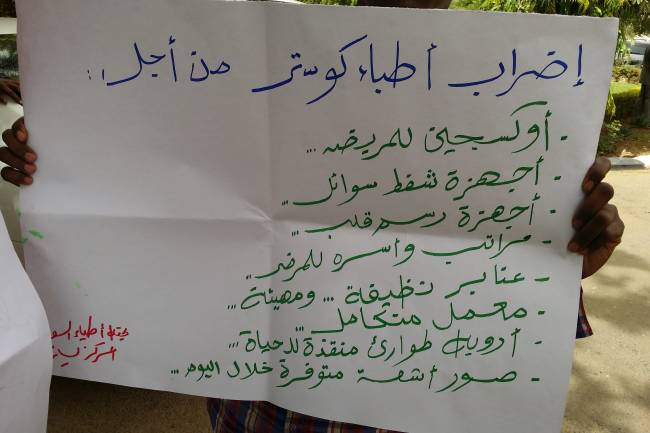 إضراب أطباء كوستي من أجل :
- أوكسجين للمريض ...
- أجهزة شفط سوائل ..
- أجهزة رسم قلب ...
- مراتب وأسره للمرضى ..
- عنابر نظيفة ... ومهيئة ...
- معمل متكامل ...
- أدوية طوارئ منقذة للحياة ...
- صور أشعة متوفرة خلال اليوم ...
أطباء السو
المركزية